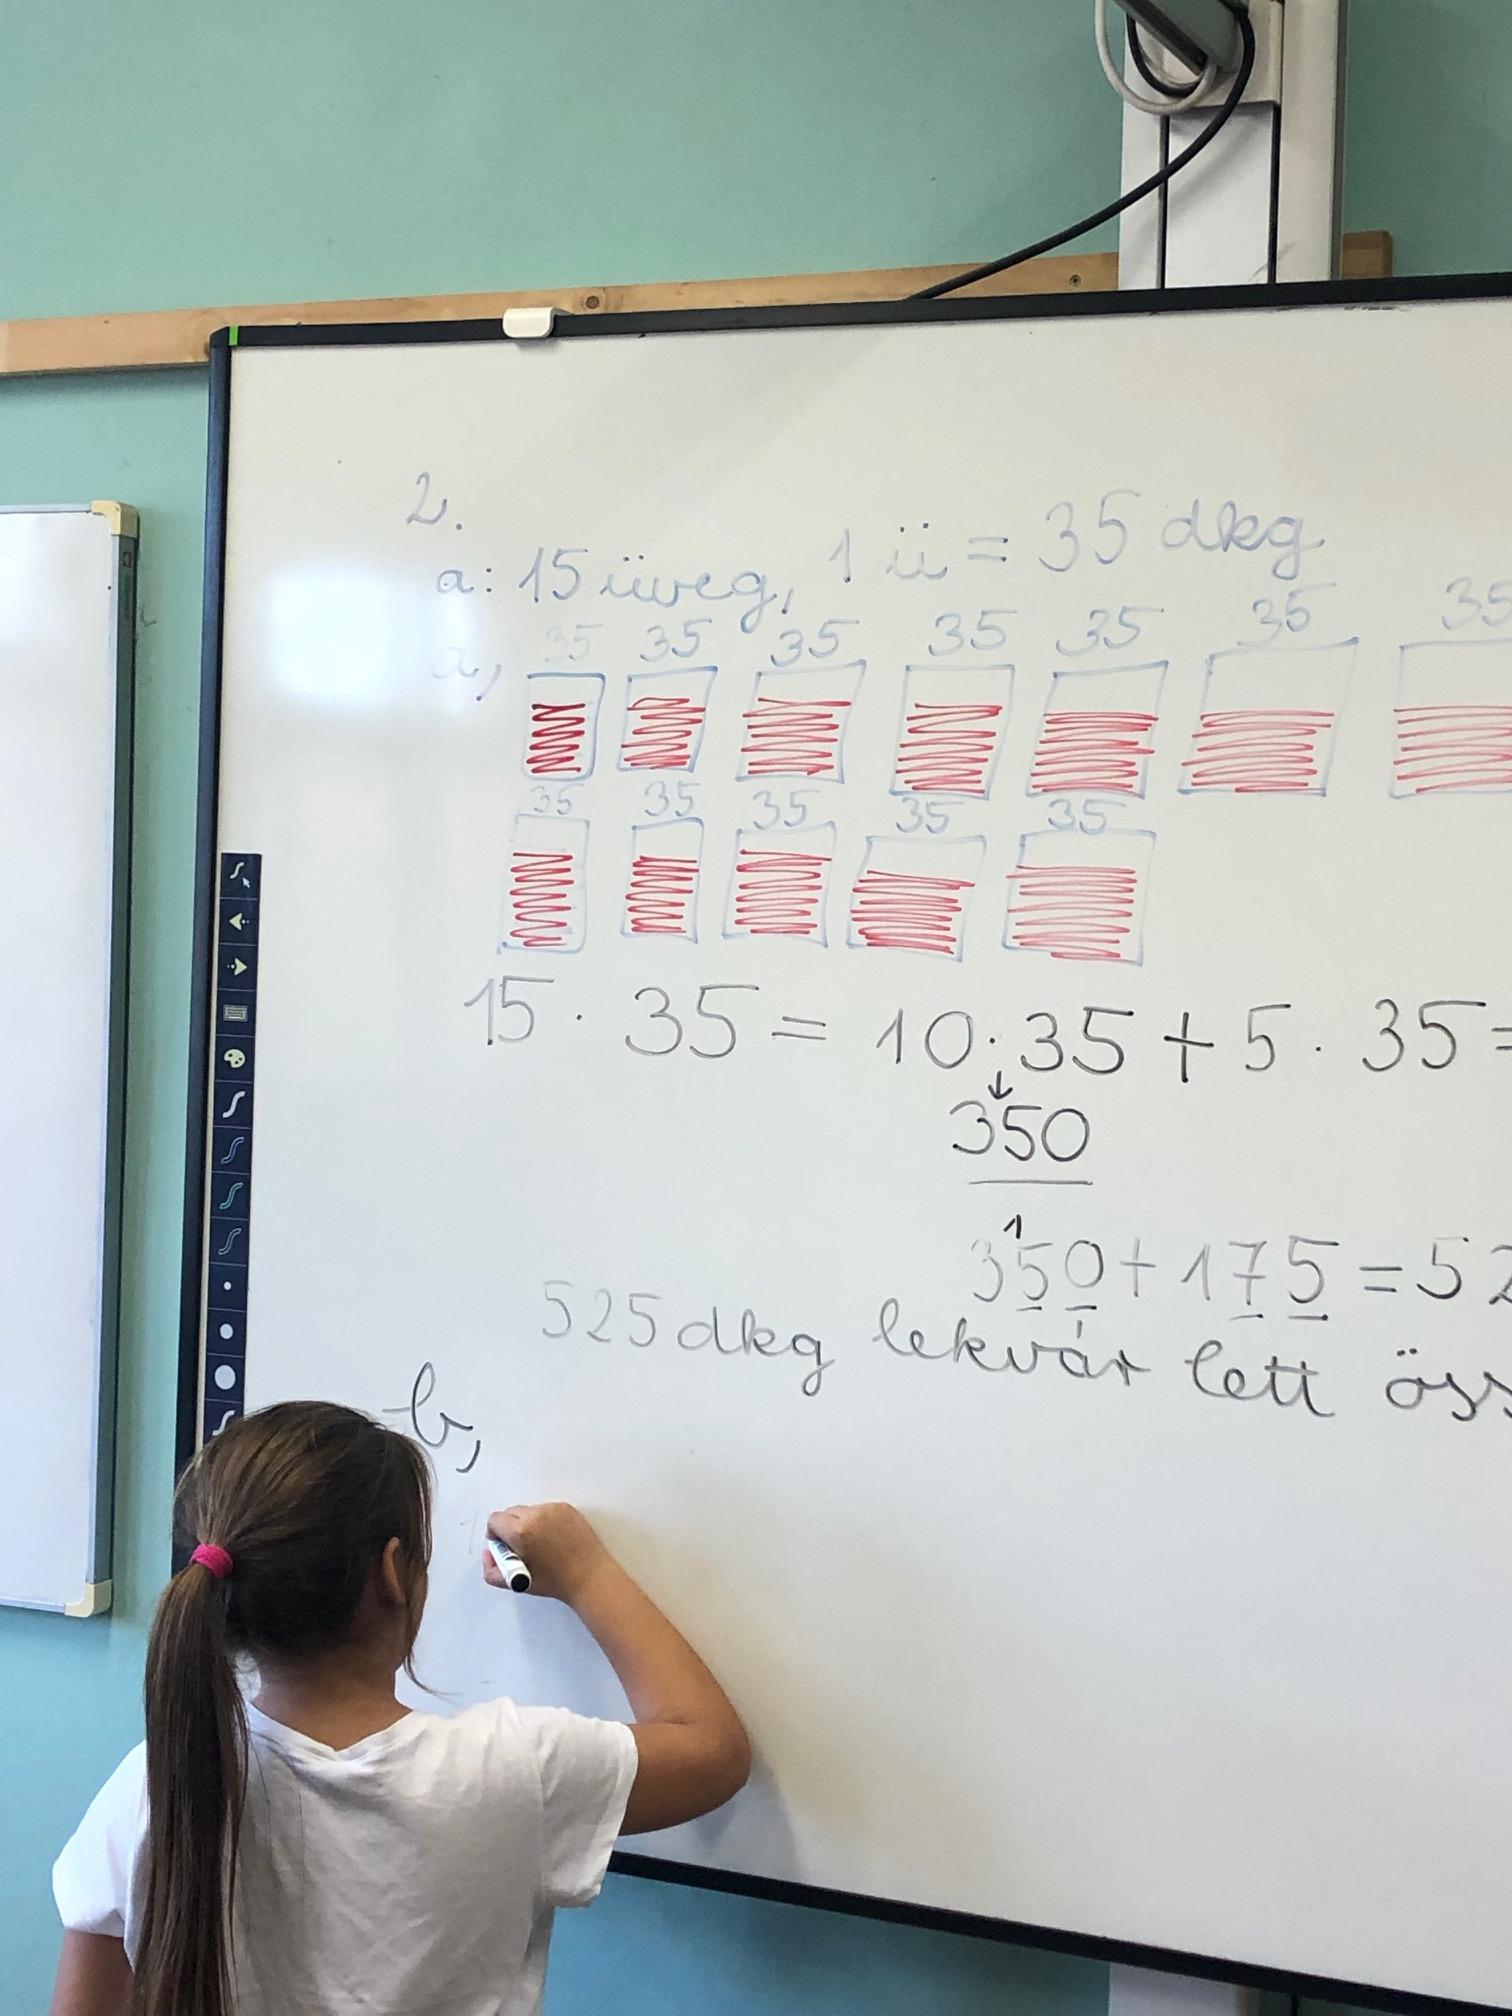 2.
a: 15 üveg, 1 ü = 35 dkg
a, 35 35 35 35 35 35 35
35 35 35 35 35
15 · 35 = 10 · 35 + 5 · 35 =
↓
350
1
350 + 175 = 52
525 dkg lekvár lett öss
b,
1